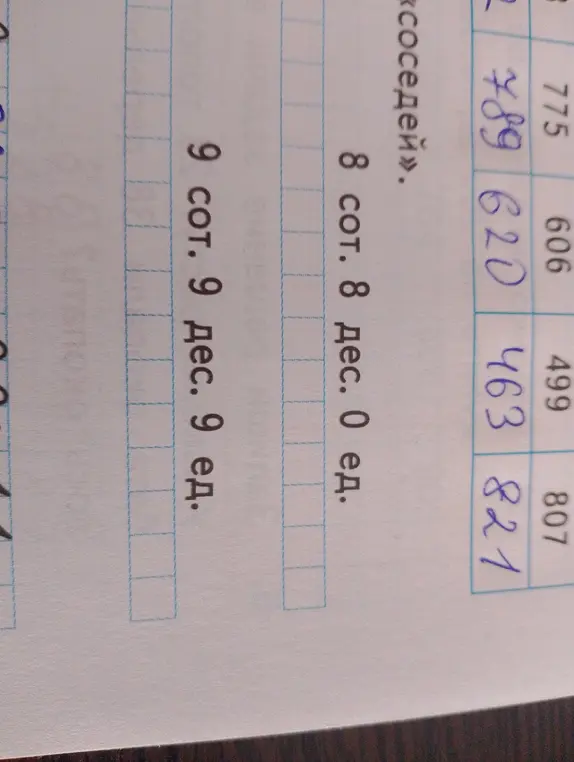 775 606 499 807
789 620 463 821
«соседей».
8 сот. 8 дес. 0 ед.
9 сот. 9 дес. 9 ед.